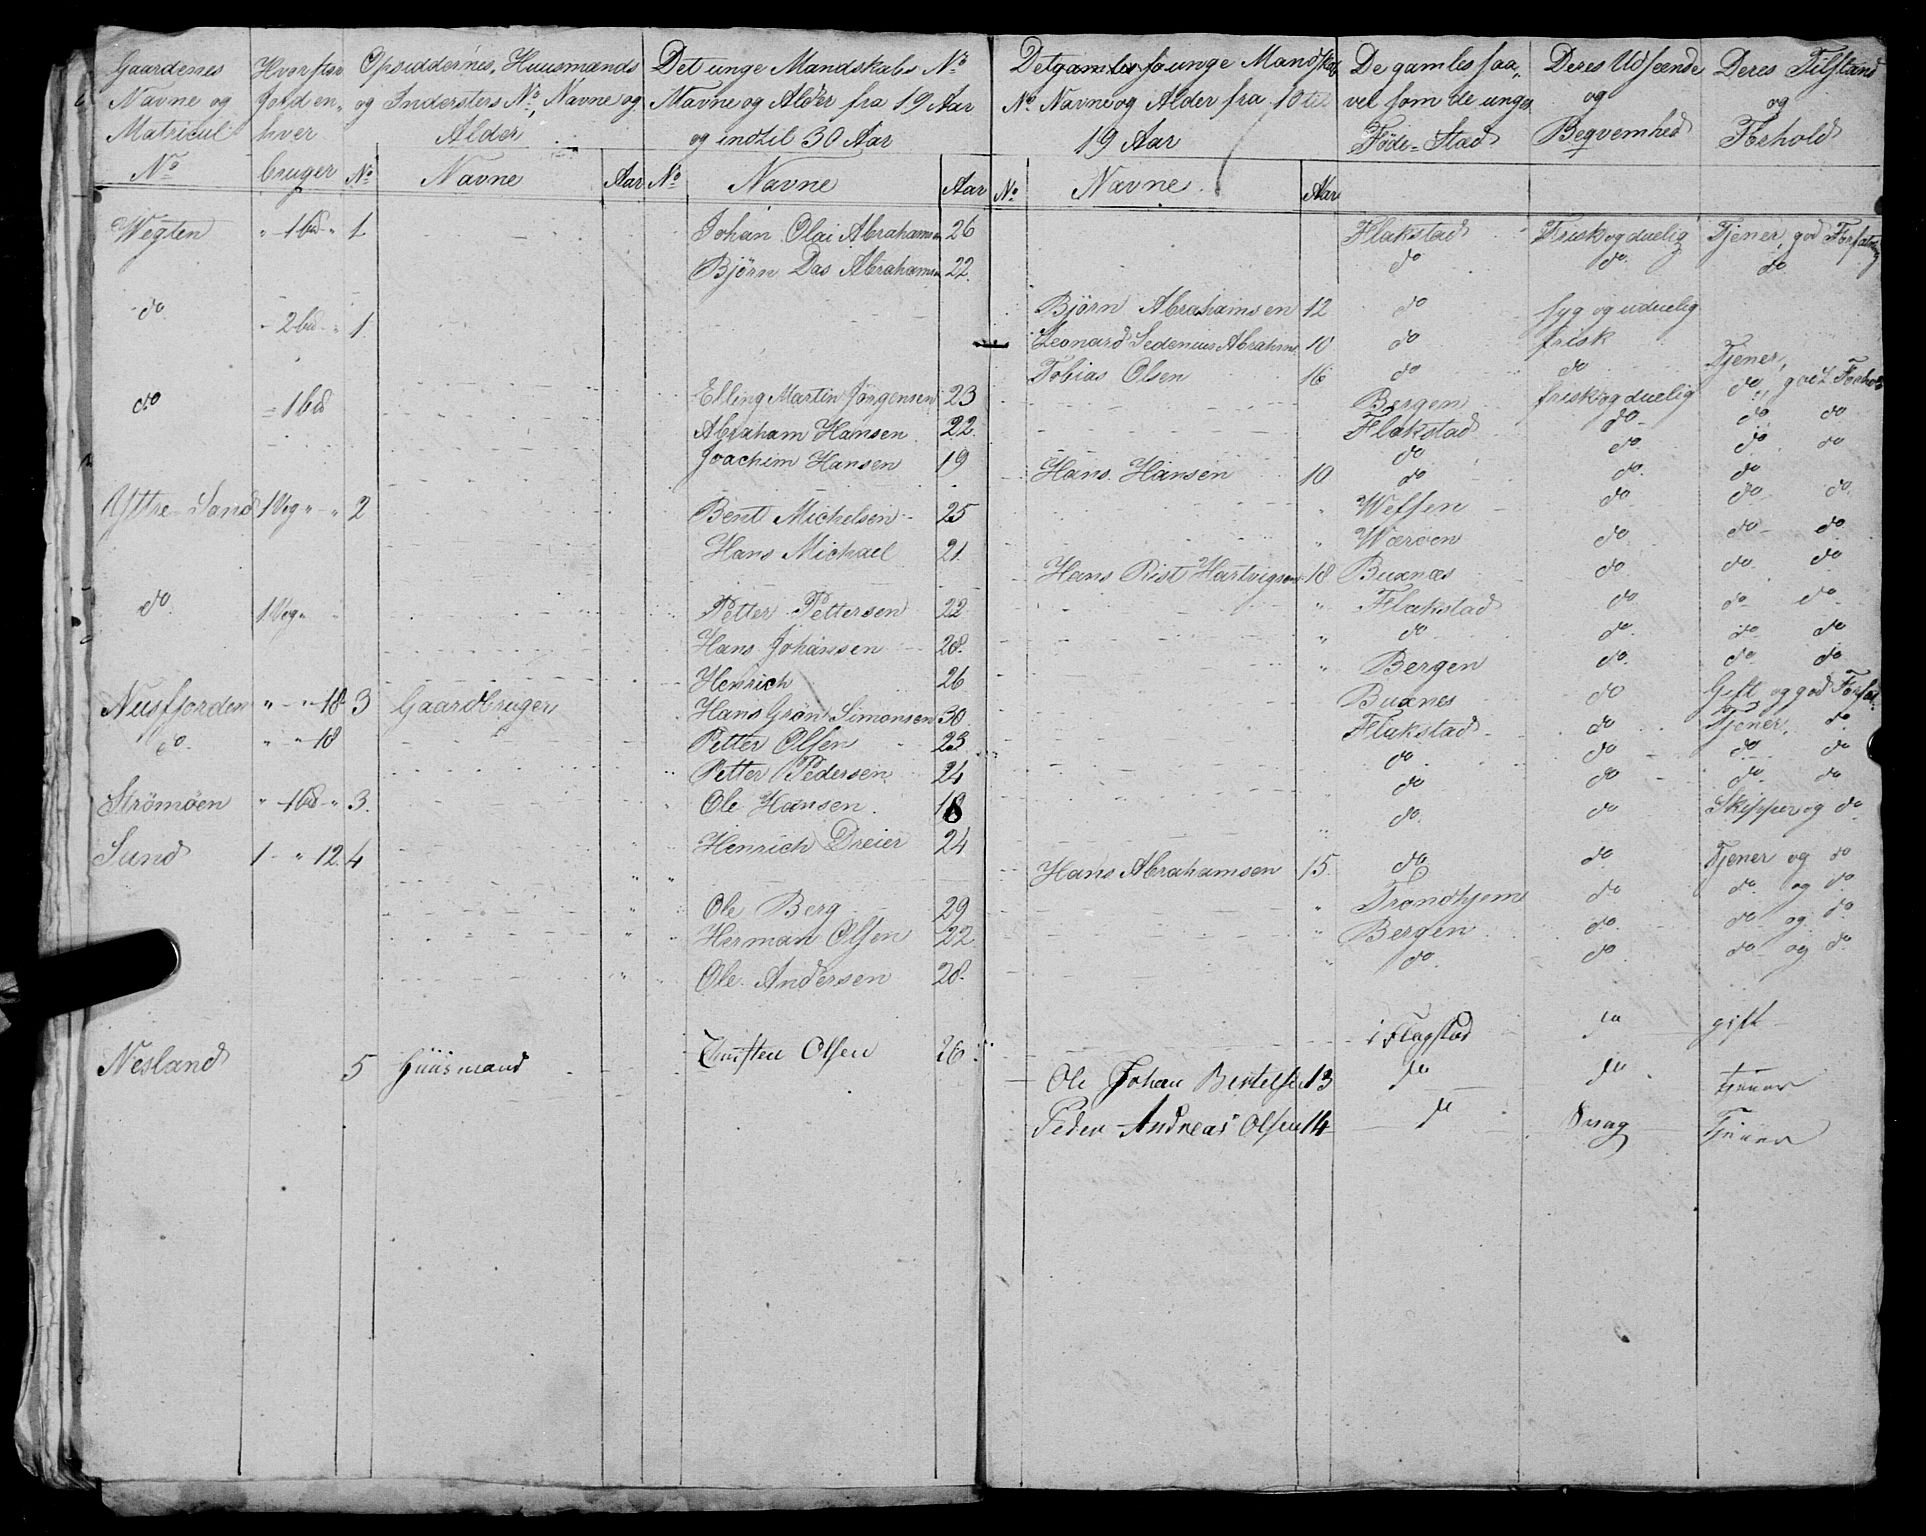 Gaardenes Navne og Matricul No
Hvorstor Jorden hver bruger
Opsiddernes, Huusmænds og Indersters No, Navne og Alder
Det unge Mandskabs No Navne og Alder fra 19 Aar og indtil 30 Aar
unge Mandskab No Navne og Alder fra 10 til 19 Aar
De gamles saavel som de unges Föde-Stad
Deres Udseende og Beqvemhed
Deres Tilstand og Forhold
No Navne Aar No Navne Aar No Navne Aar
Wegten " -1bd- " 1 Johan Olai Abrahamsen 26 Flakstad Frisk og duelig Tjener, god Forfatning
Bjørn Das Abrahamsen 22 do do do
do - 2bd- " 1 Bjørn Abrahamsen 12 do syg og uduelig
Leonard Sedenius Abrahams 10 do frisk
Tobias Olsen 16 do do Tjener,
do - 1bd Elling Martin Jörgensen 23 Bergen frisk og duelig do, godt Forhold
Abraham Hansen 22 Flakstad do do do
Joachim Hansen 19 do do do do
Hans Hansen 10 do do do
Yttre-Sand 1 Vog " " 2 Bent Michelsen 25 Wefsen do do do
Hans Michael 21 Wærøen do do do
Hans Rist Hartvigsen 18 Buxnæs do do do
do 1 Vog " " Petter Pettersen 22 " Flakstad do do do
Hans Johansen 28 " do do do do
Henrich 26 " Bergen do do do
Nusfjorden " - " 18 3 Gaardbruger Hans Grøn Simonsen 30 Buxnes do Gift og god
do " " 18 Petter Olsen 23 Flakstad do Tjener, do
Petter Pedersen 24 do do do do
Strömøen " -1bd- " 3 Ole Hansen 18 do do do do
Sund 1 - " 12 4 Henrich Dreier 24 do do Skipper og do
Hans Abrahamsen 15 do do Tjener og do
Ole Berg 29 " Trondhjem do do og do
Herman Olsen 22 " Bergen do do og do
Ole Andersen 28 " do do do og do
Nesland 5 Huusmand Christen Olsen 26 i Flagstad do gift
Ole Johan Bertelsen 13 do do tjener
Peder Andreas Olsen 14 do Svag Tjener